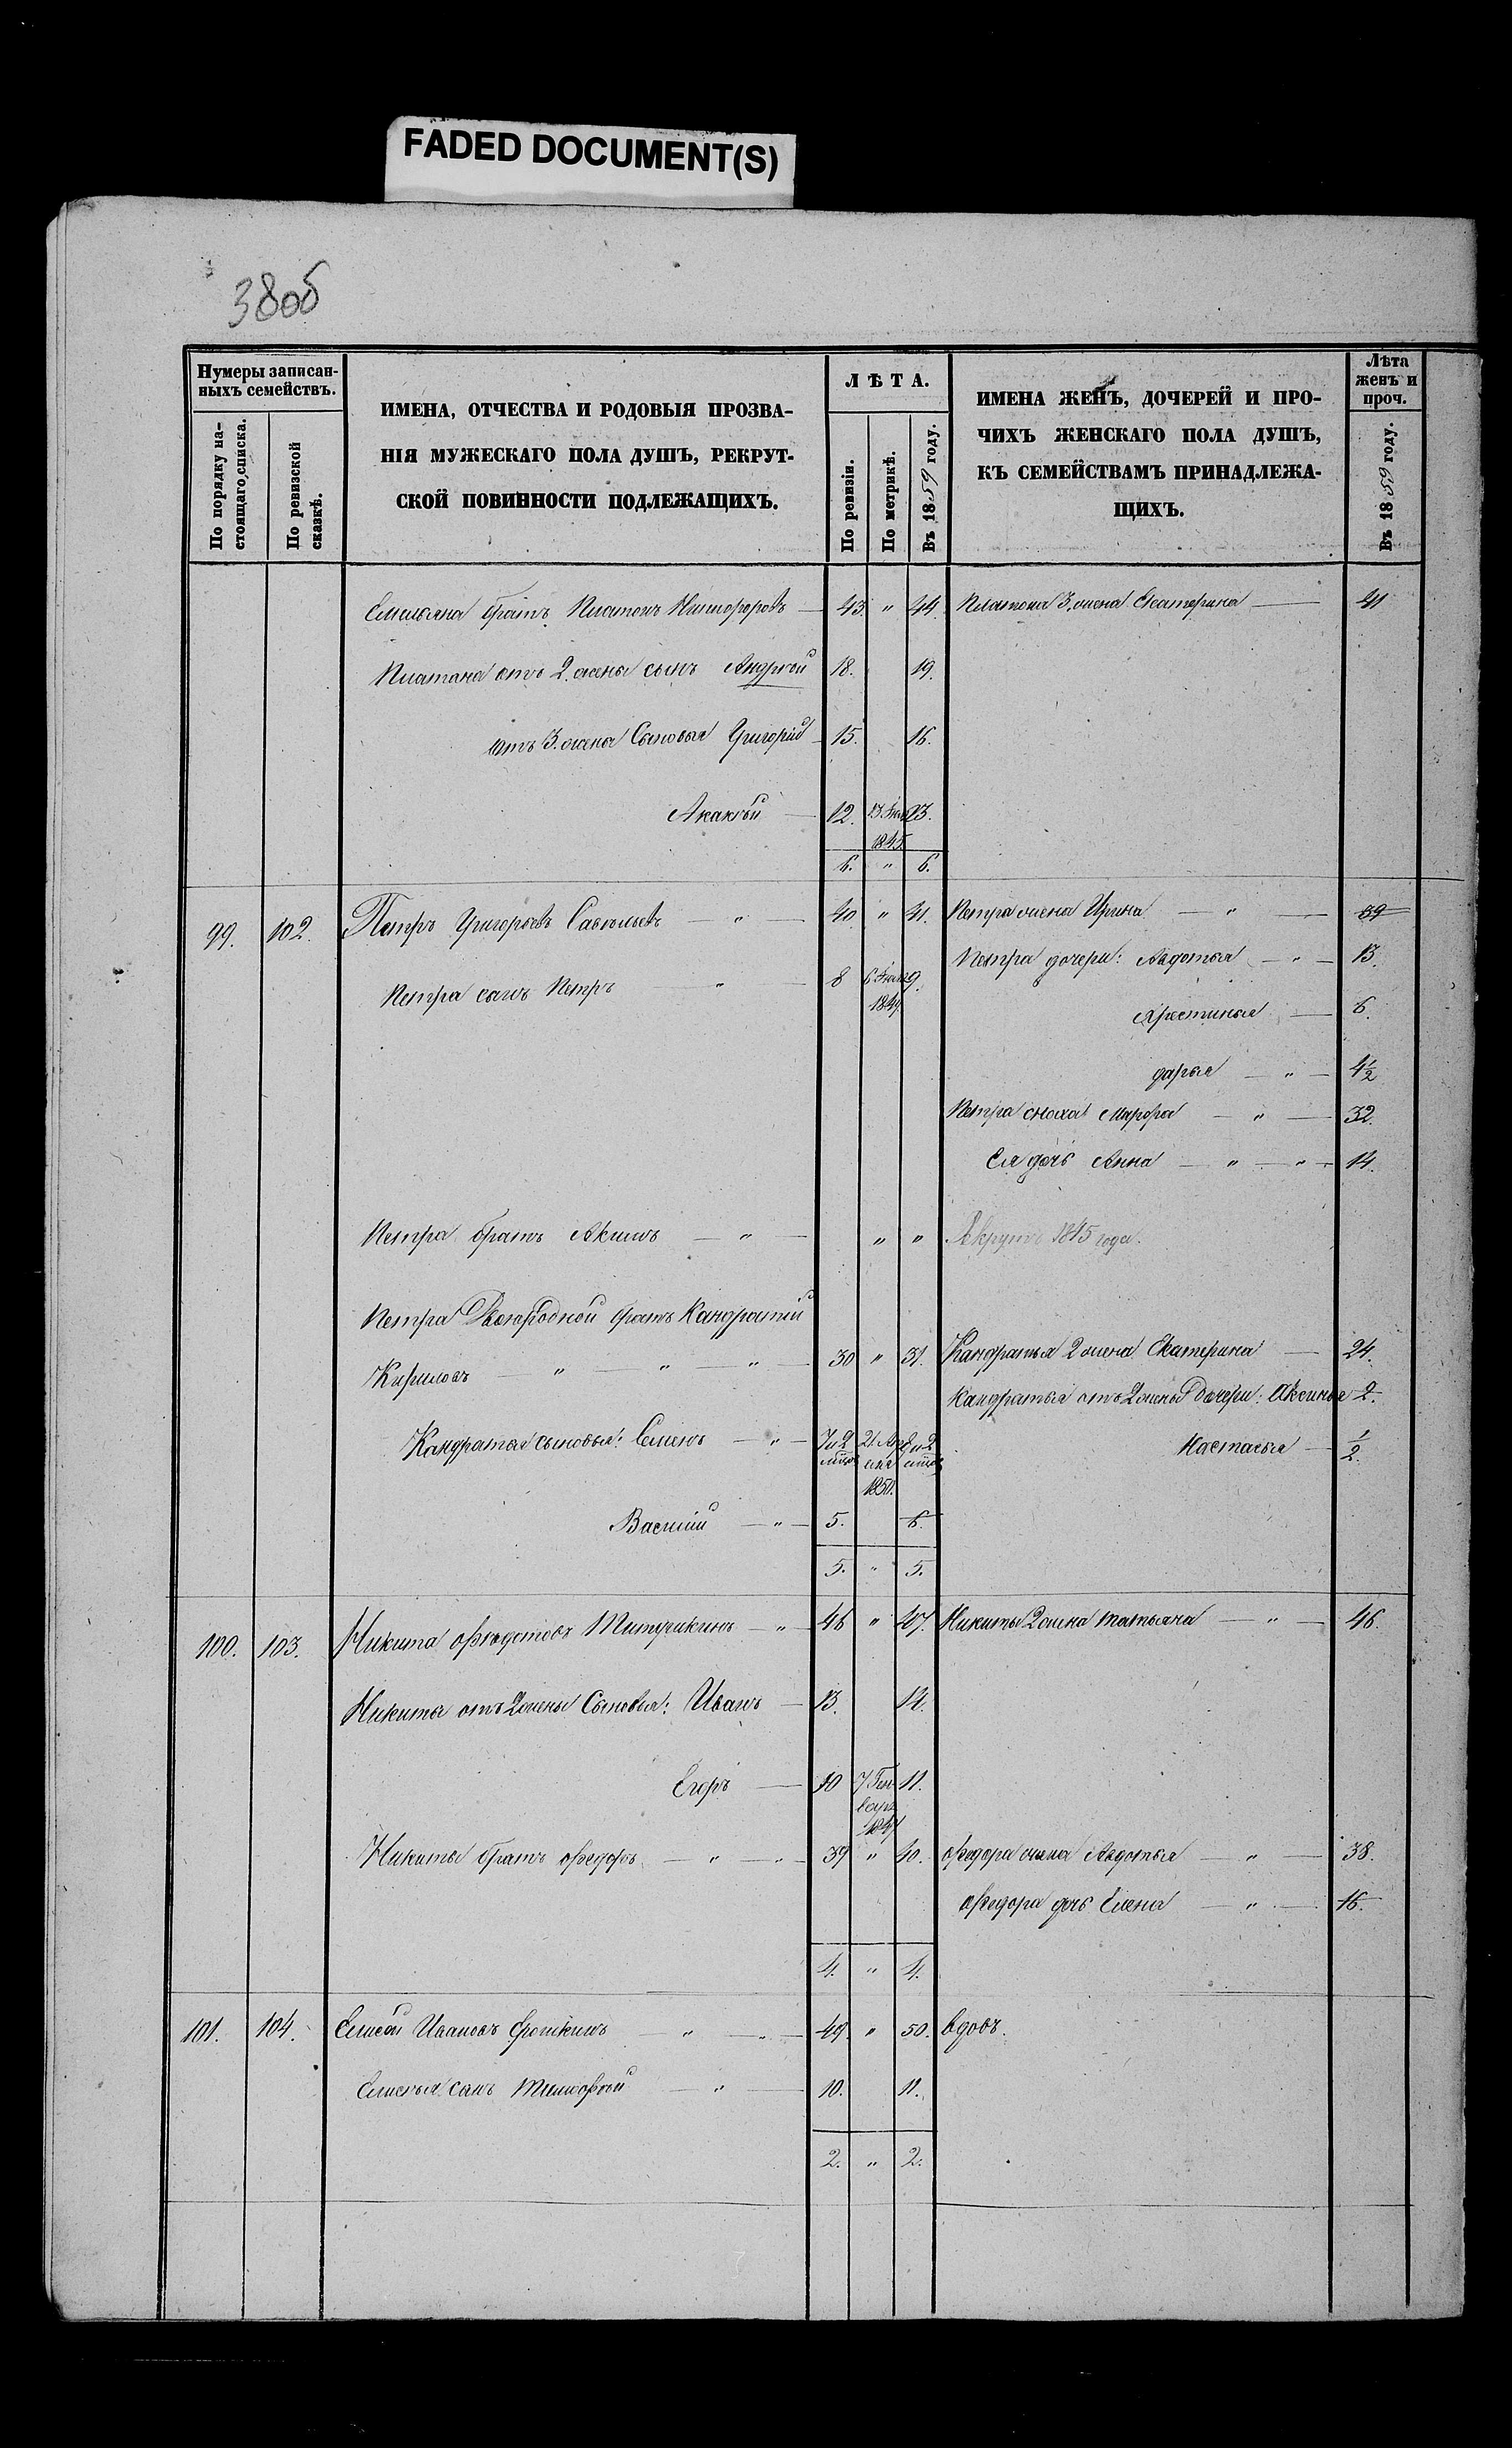 FADED DOCUMENT(S)
38об
Нумеры записан-
ныхъ семействъ.
По порядку на-
стоящаго списка.
По ревизской
сказкѣ.
ИМЕНА, ОТЧЕСТВА И РОДОВЫЯ ПРОЗВА-
НІЯ МУЖЕСКАГО ПОЛА ДУШЪ, РЕКРУТ-
СКОЙ ПОВИННОСТИ ПОДЛЕЖАЩИХЪ.
ЛѢТА.
По ревизіи.
По метрикѣ.
Въ 1859 году.
ИМЕНА ЖЕНЪ, ДОЧЕРЕЙ И ПРО-
ЧИХЪ ЖЕНСКАГО ПОЛА ДУШЪ,
КЪ СЕМЕЙСТВАМЪ ПРИНАДЛЕЖА-
ЩИХЪ.
Лѣта
женъ и
проч.
Въ 1859 году.
Емельяна братъ Платонъ Никифоровъ — 43. " 44. Платона 3. жена Екатерина — 41
Платона отъ 2. жены сынъ Андрей 18. 19.
отъ 3. жены Сыновья Григорій — 15. 16.
Акакій — 12. 13.
1845.
6. " 6.
99. 102. Петръ Григорьевъ Савельевъ — " — 40 " 41. Петра жена Ирина — " — 39
Петра дочери: Авдотья — " — 13.
Петра сынъ Петръ — " — 8 9.
1849.
Хрестинья — 6.
дарья — " — 4½
Петра сноха Марфа — " — 32.
Ея дочь Анна — " — " — 14.
Петра братъ Акимъ — " — " " Рекрутъ 1845 года.
Петра Двоюродной братъ Кандратій
Кириловъ — " — " — " — 30 " 31. Кандратья 2 жена Екатерина — 24.
Кандратья отъ 2 жены дочери: Аксинья 2.
Кандратья сыновья: Семенъ — " — 7 и 2 21 Апр 8 и 2
1850.
Настасья — ½.
Василій — " — 5. 6.
5. " 5.
100. 103. Никита Ѳедотовъ Митрикинъ — " — 46 " 47. Никиты 2 жена Татьяна — " — 46.
Никиты отъ 2 жены Сыновья: Иванъ — 13. 14.
Егоръ — 10 7 Ген- 11.
варя
Никиты братъ Ѳедоръ — " — " — 39 " 40. Ѳедора жена Авдотья — " — 38.
Ѳедора дочь Елена — " — 16.
4. " 4.
101. 104. Елисей Ивановъ — " — " — 49. " 50. вдовъ.
Елисея сынъ Тимофей — " — 10. 11.
2. " 2.